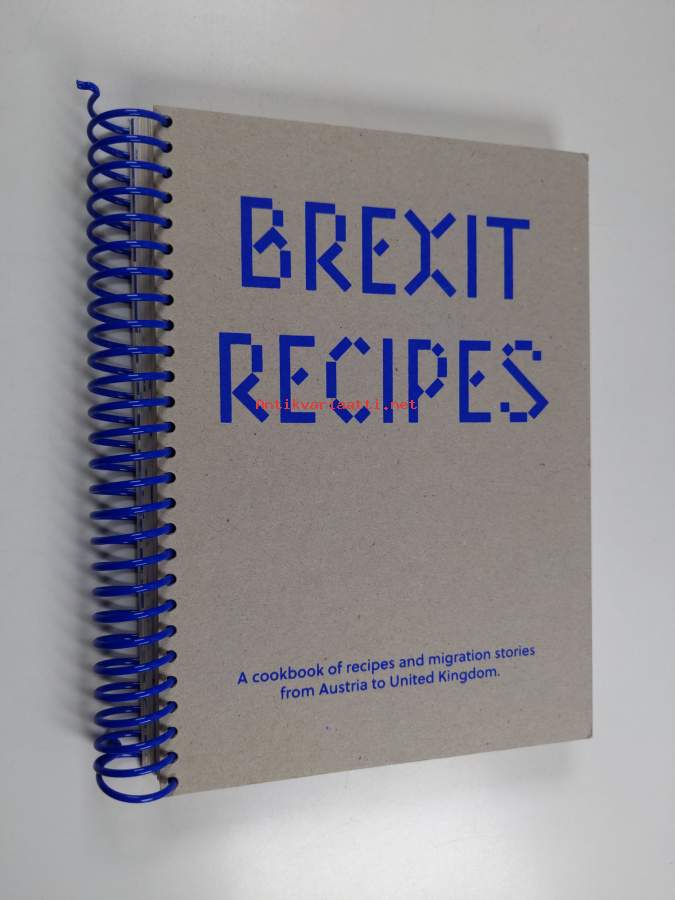 BREXIT
RECIPES
Antikvariaatti.net
A cookbook of recipes and migration stories
from Austria to United Kingdom.